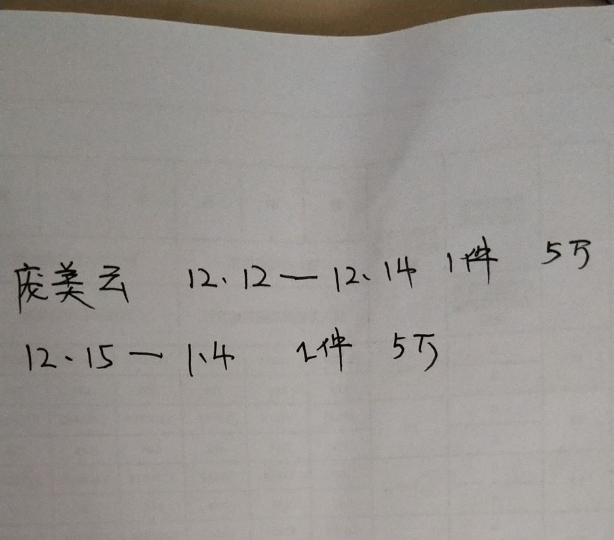 庞美云 12.12—12.14 1件 5万
12.15—1.4 2件 5万